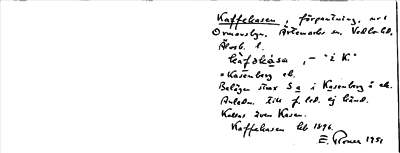 Kaffekasen, förpantning, nr 1
Ormanslyn. Ärtemarks sn. Vedbo hd,
Älvsb. l.
"i K."
Kasenberg ek.
Belägen strax S a i Kasenberg å ek.
Anledn. till f. led. ej känd.
Kallas även Kasen.
Kaffekasen hb 1896.
1951